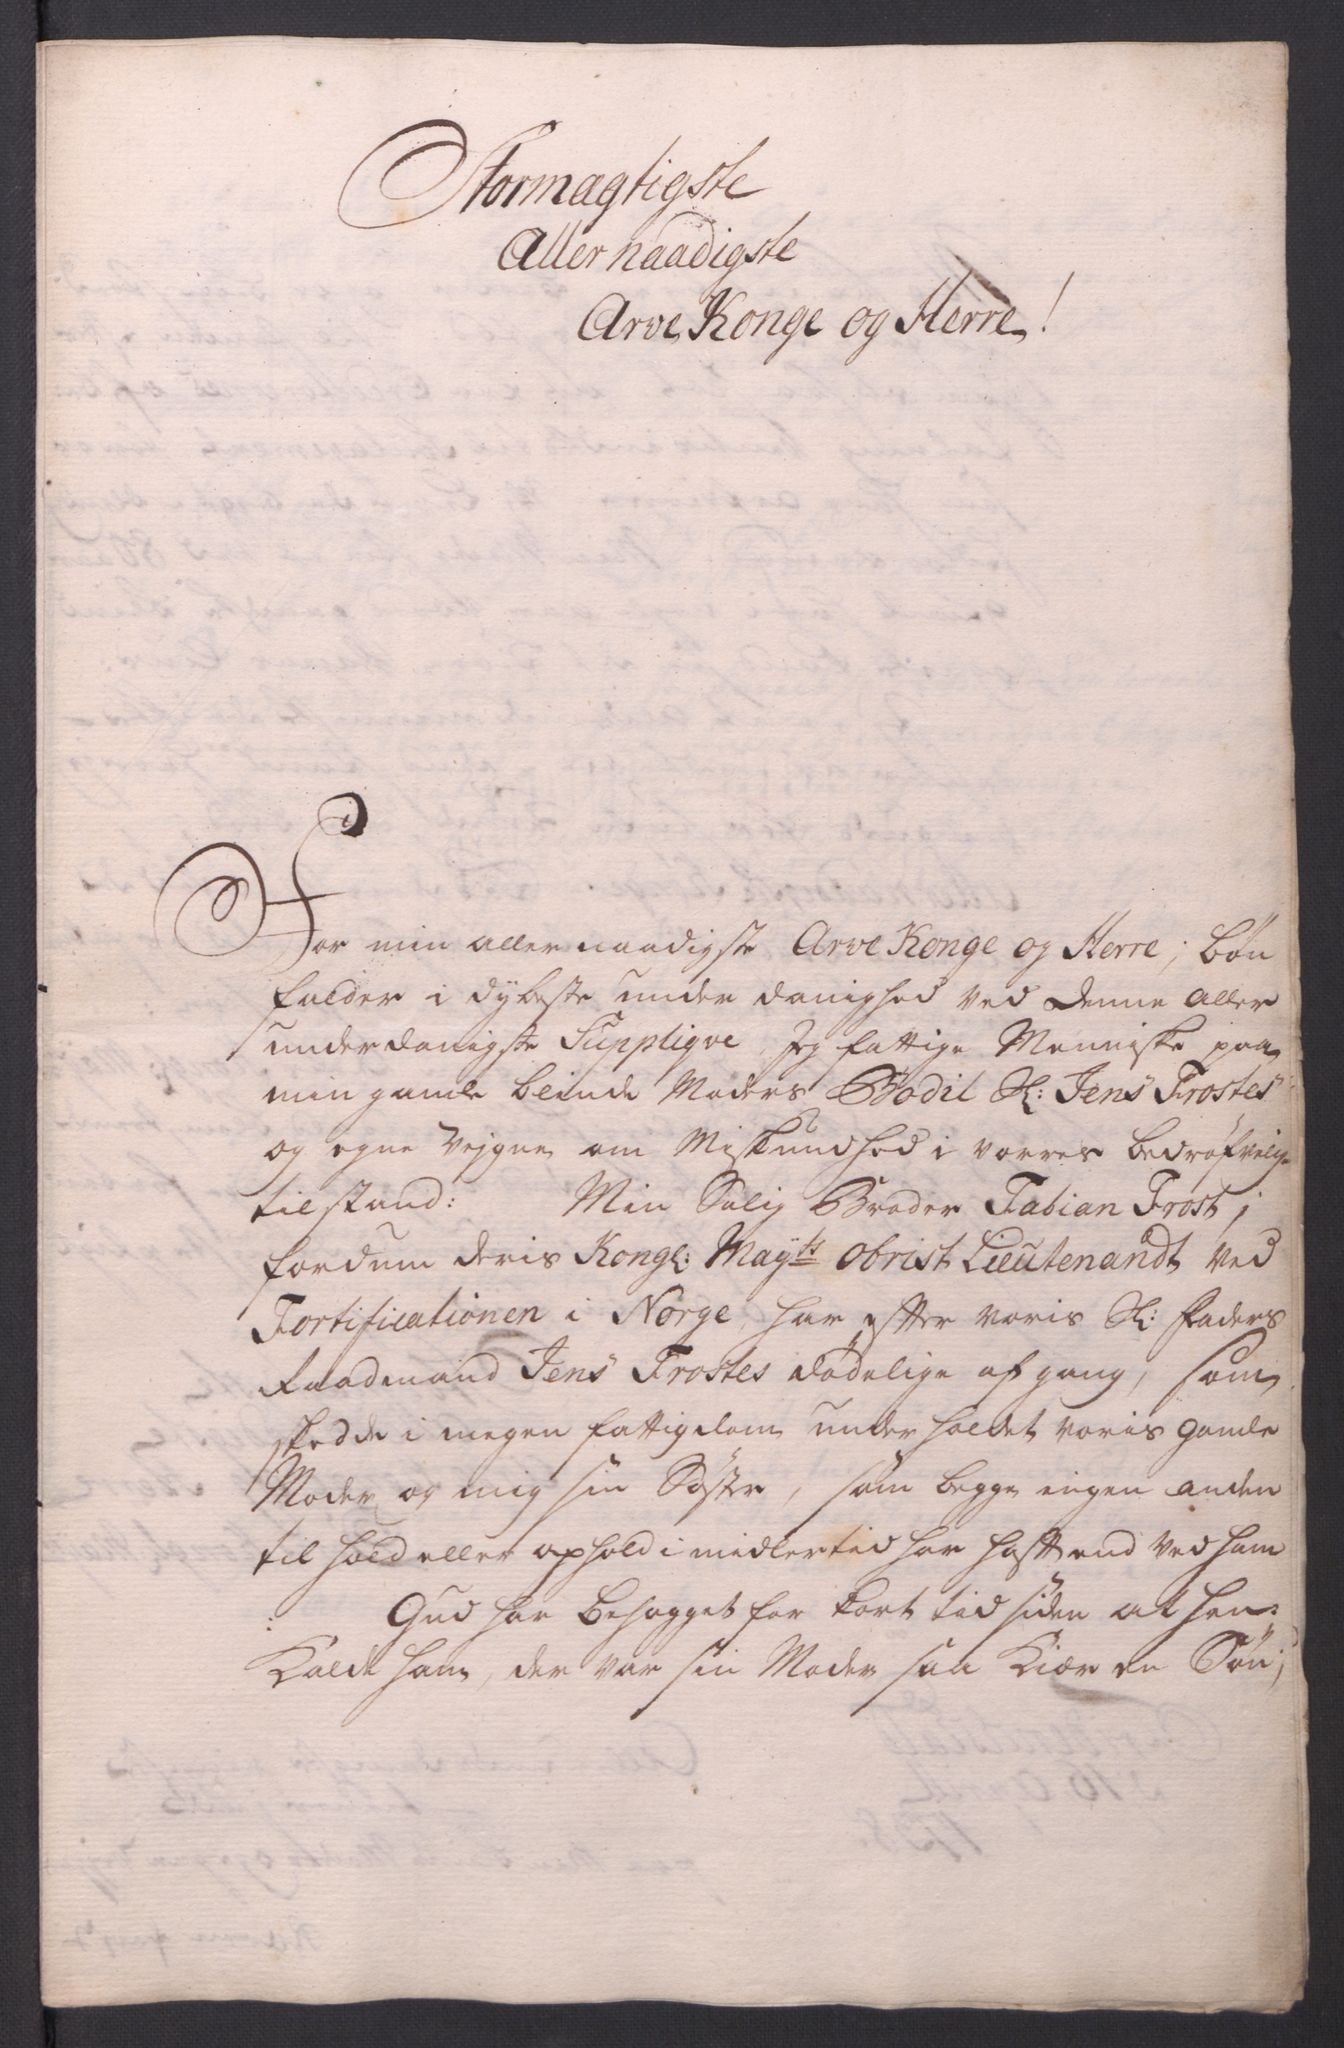 Stormagtigste
Allernaadigste
Arve Konge og Herre!
For min allernaadigste Arve Konge og Herre, bøn
falder i dybeste underdanighed ved denne aller
underdanigste Suppliqve, Jeg fattige Menniske paa
min gamle blinde Moders Bodil Sl: Jens Frostes
og egne Vejgne om Miskundhed i vorres bedrøfvelige
tilstand: Min Salig Broder Fabian Frost,
fordum deris Kongl: Mayts Obrist Lieutenandt ved
Fortificationen i Norge, har efter voris Sl: Faders
Raadmand Jens Frostes dødelige afgang, som
skedde i megen fattigdom underholdet voris gamle
Moder og mig sin Søster, som begge ingen anden
tilhold eller ophold imidlertid har haft end ved ham
Gud har behagget for kort tid siden at hen-
kalde ham, der var sin Moder saa kiær en Søn,